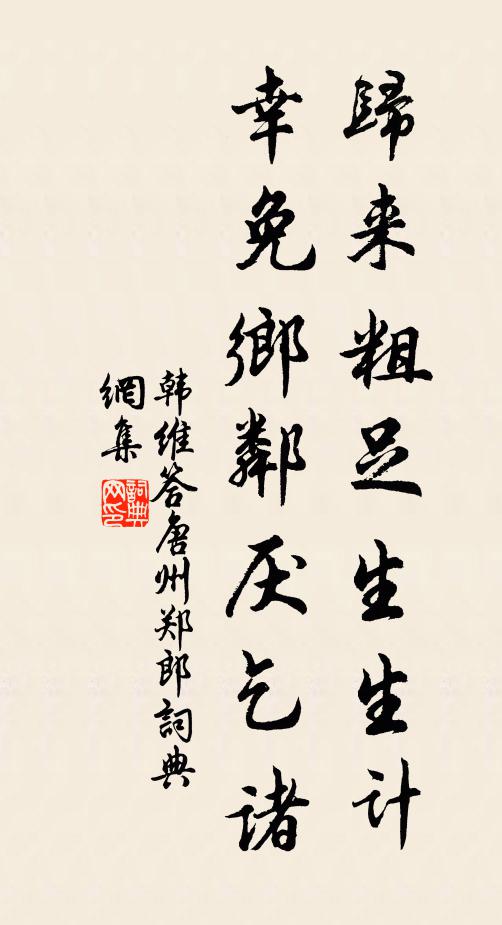 歸来粗足生生计
幸免鄉鄰厌乞诸
韩维答唐州郑郎詞典
網集
詞典
网印